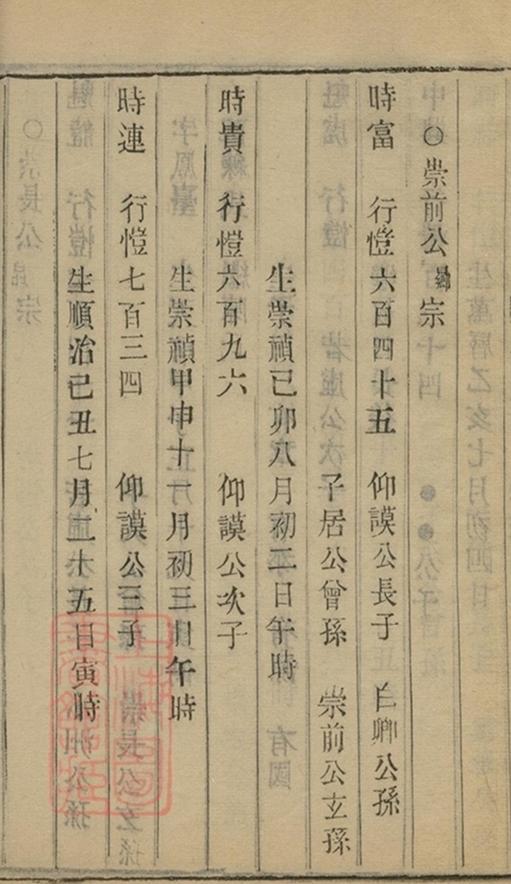 ○崇前公鄉宗
時富 行愷六百四十五 仰謨公長子 白卿公孫
子居公曾孫 崇前公玄孫
生崇禎己卯八月初二日午時
時貴 行愷六百九六 仰謨公次子
生崇禎甲申十一月初三日午時
時連 行愷七百三四 仰謨公三子
生順治己丑七月二十五日寅時